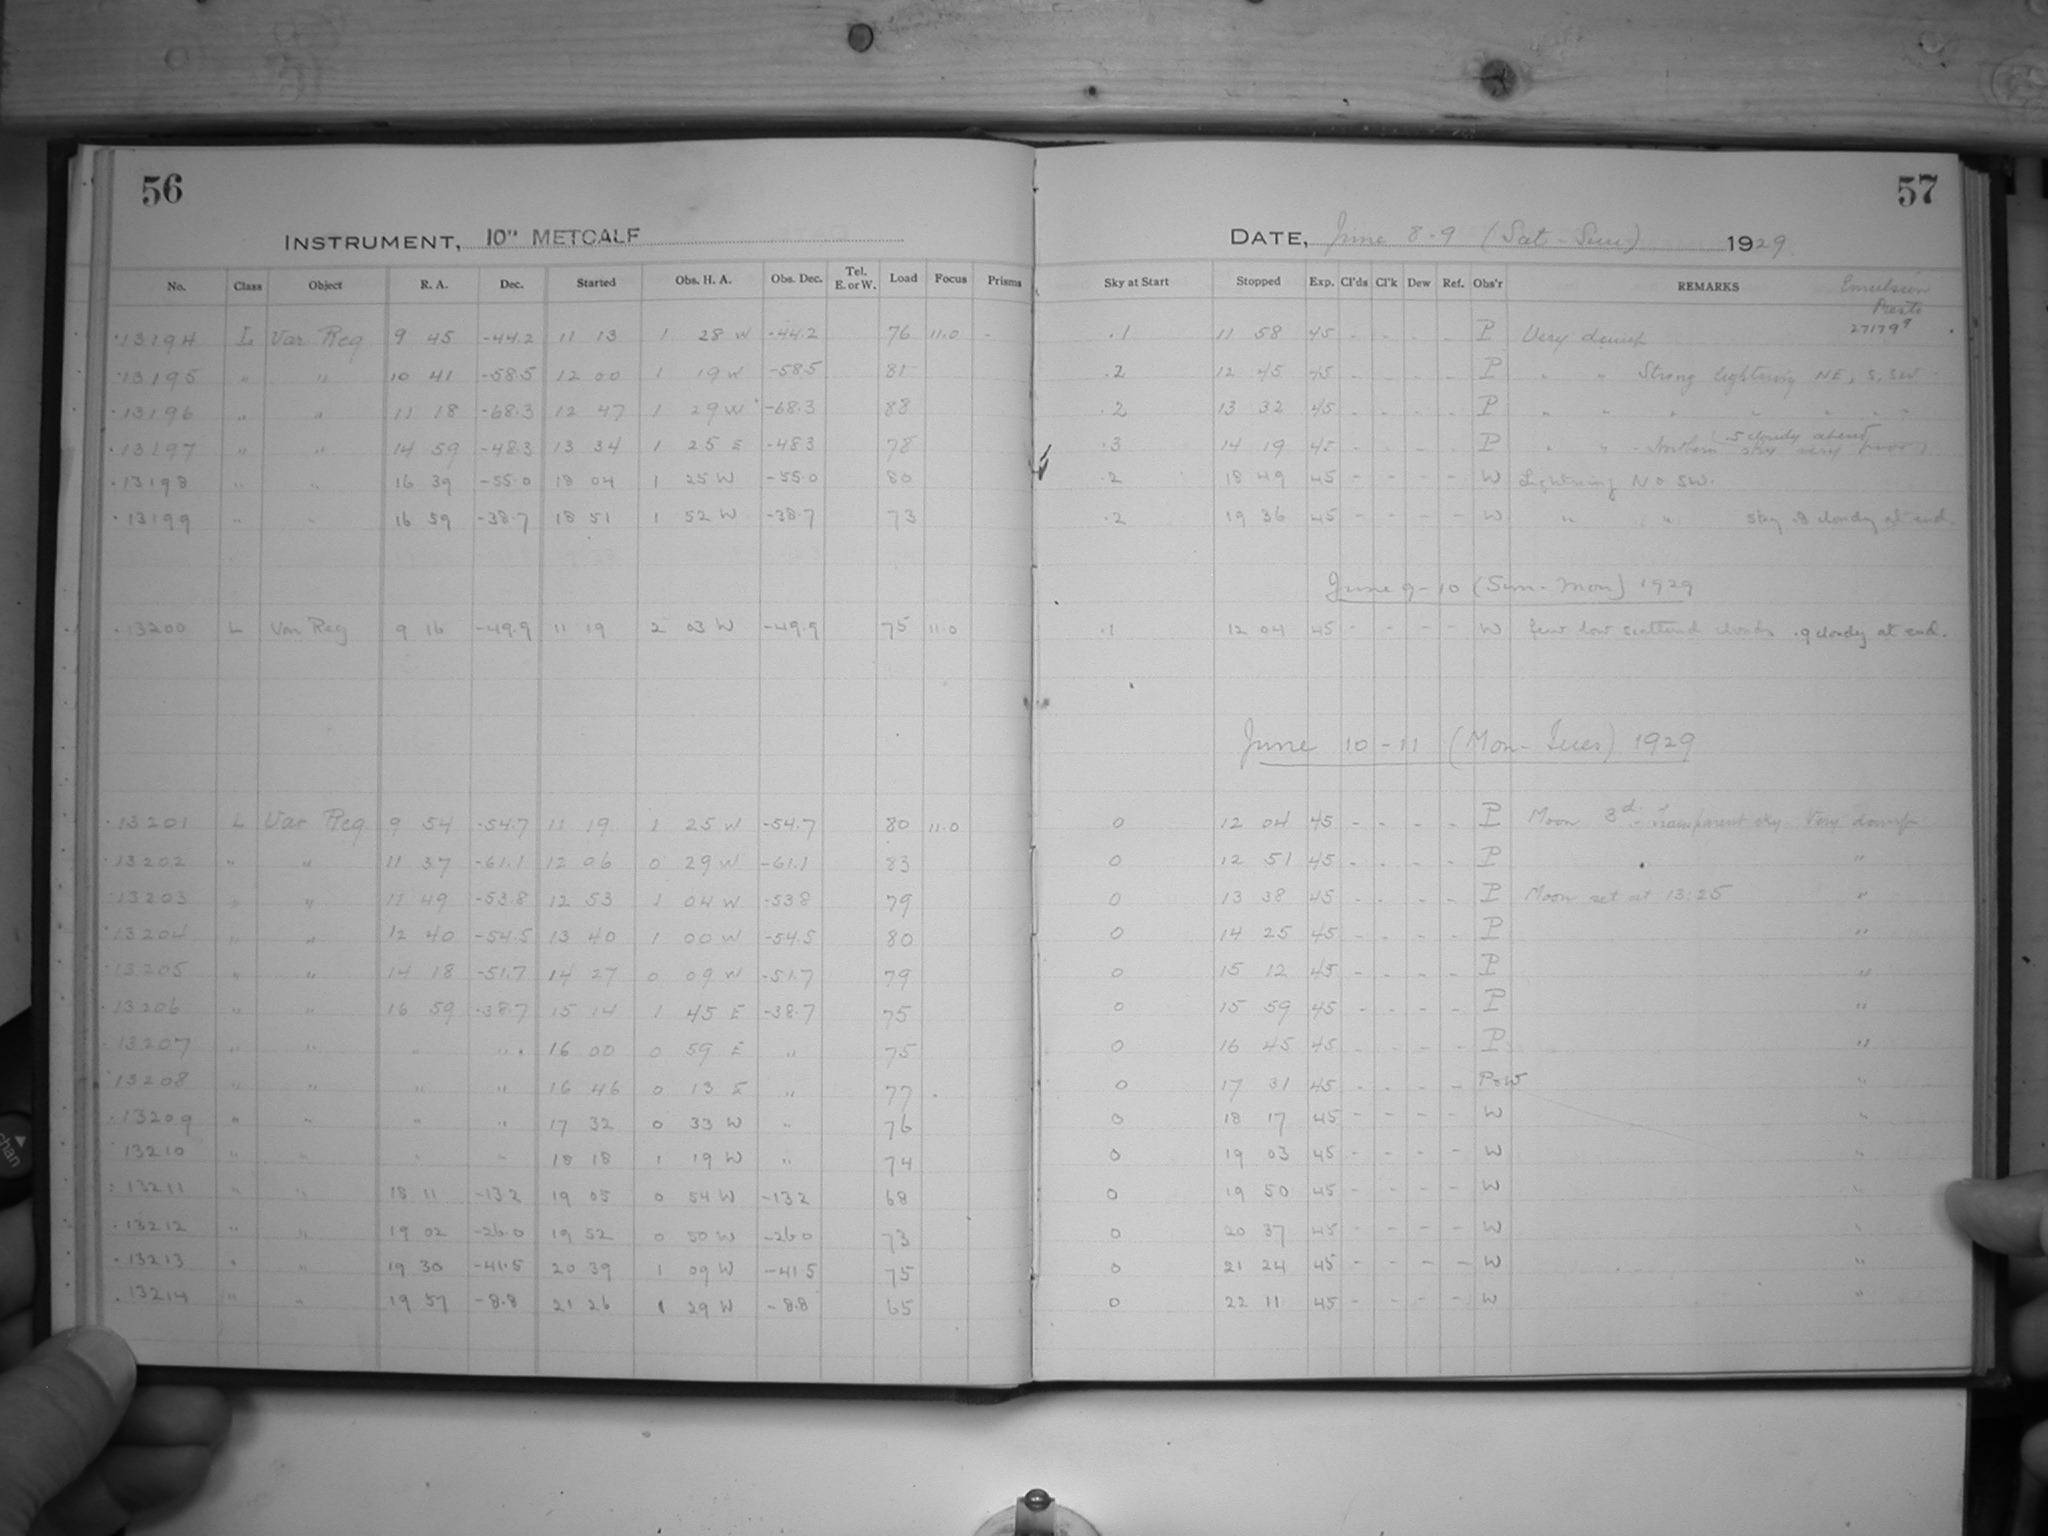 56
57
INSTRUMENT, 10" METCALF
DATE, June 8-9 (Sat-Sun) 1929
No. Class Object R. A. Dec. Started Obs. H. A. Obs. Dec. Tel. E. or W. Load Focus Prisms Sky at Start Stopped Exp. Cl'ds Cl'k Dew Ref. Obs'r REMARKS Emulsion
Presto
27179
13194 L Var Reg 9 45 -44.2 11 13 1 28 W -44.2 76 11.0 - .1 11 58 45 - - - - P Very damp
13195 " " 10 41 -58.5 12 00 1 19 W -58.5 81 .2 12 45 45 - - - - P " " Strong lightning NE, S, SW
13196 " " 11 18 -68.3 12 47 1 29 W -68.3 88 .2 13 32 45 - - - - P " " " " " " "
13197 " " 14 59 -48.3 13 34 1 25 E -48.3 78 .3 14 19 45 - - - - P " " - Northern sky very poor .5 cloudy at end
13198 " " 16 39 -55.0 18 04 1 25 W -55.0 80 .2 18 49 45 - - - - W Lightning N & SW.
13199 " " 16 59 -38.7 18 51 1 52 W -38.7 73 .2 19 36 45 - - - - W " " sky .8 cloudy at end
June 9-10 (Sun-Mon) 1929
13200 L Var Reg 9 16 -49.9 11 19 2 03 W -49.9 75 11.0 .1 12 04 45 - - - - W few low scattered clouds .9 cloudy at end.
June 10-11 (Mon-Tues) 1929
13201 L Var Reg 9 54 -54.7 11 19 1 25 W -54.7 80 11.0 0 12 04 45 - - - - P Moon 3d - Transparent sky. Very damp
13202 " " 11 37 -61.1 12 06 0 29 W -61.1 83 0 12 51 45 - - - - P "
13203 " " 11 49 -53.8 12 53 1 04 W -53.8 79 0 13 38 45 - - - - P Moon set at 13:25 "
13204 " " 12 40 -54.5 13 40 1 00 W -54.5 80 0 14 25 45 - - - - P "
13205 " " 14 18 -51.7 14 27 0 09 W -51.7 79 0 15 12 45 - - - - P "
13206 " " 16 59 -38.7 15 14 1 45 E -38.7 75 0 15 59 45 - - - - P "
13207 " " " " 16 00 0 59 E " 75 0 16 45 45 - - - - P "
13208 " " " " 16 46 0 13 E " 77 0 17 31 45 - - - - P&W "
13209 " " " " 17 32 0 33 W " 76 0 18 17 45 - - - - W "
13210 " " " " 18 18 1 19 W " 74 0 19 03 45 - - - - W "
13211 " " 18 11 -13.2 19 05 0 54 W -13.2 68 0 19 50 45 - - - - W "
13212 " " 19 02 -26.0 19 52 0 50 W -26.0 73 0 20 37 45 - - - - W "
13213 " " 19 30 -41.5 20 39 1 09 W -41.5 75 0 21 24 45 - - - - W "
13214 " " 19 57 -8.8 21 26 1 29 W -8.8 65 0 22 11 45 - - - - W "